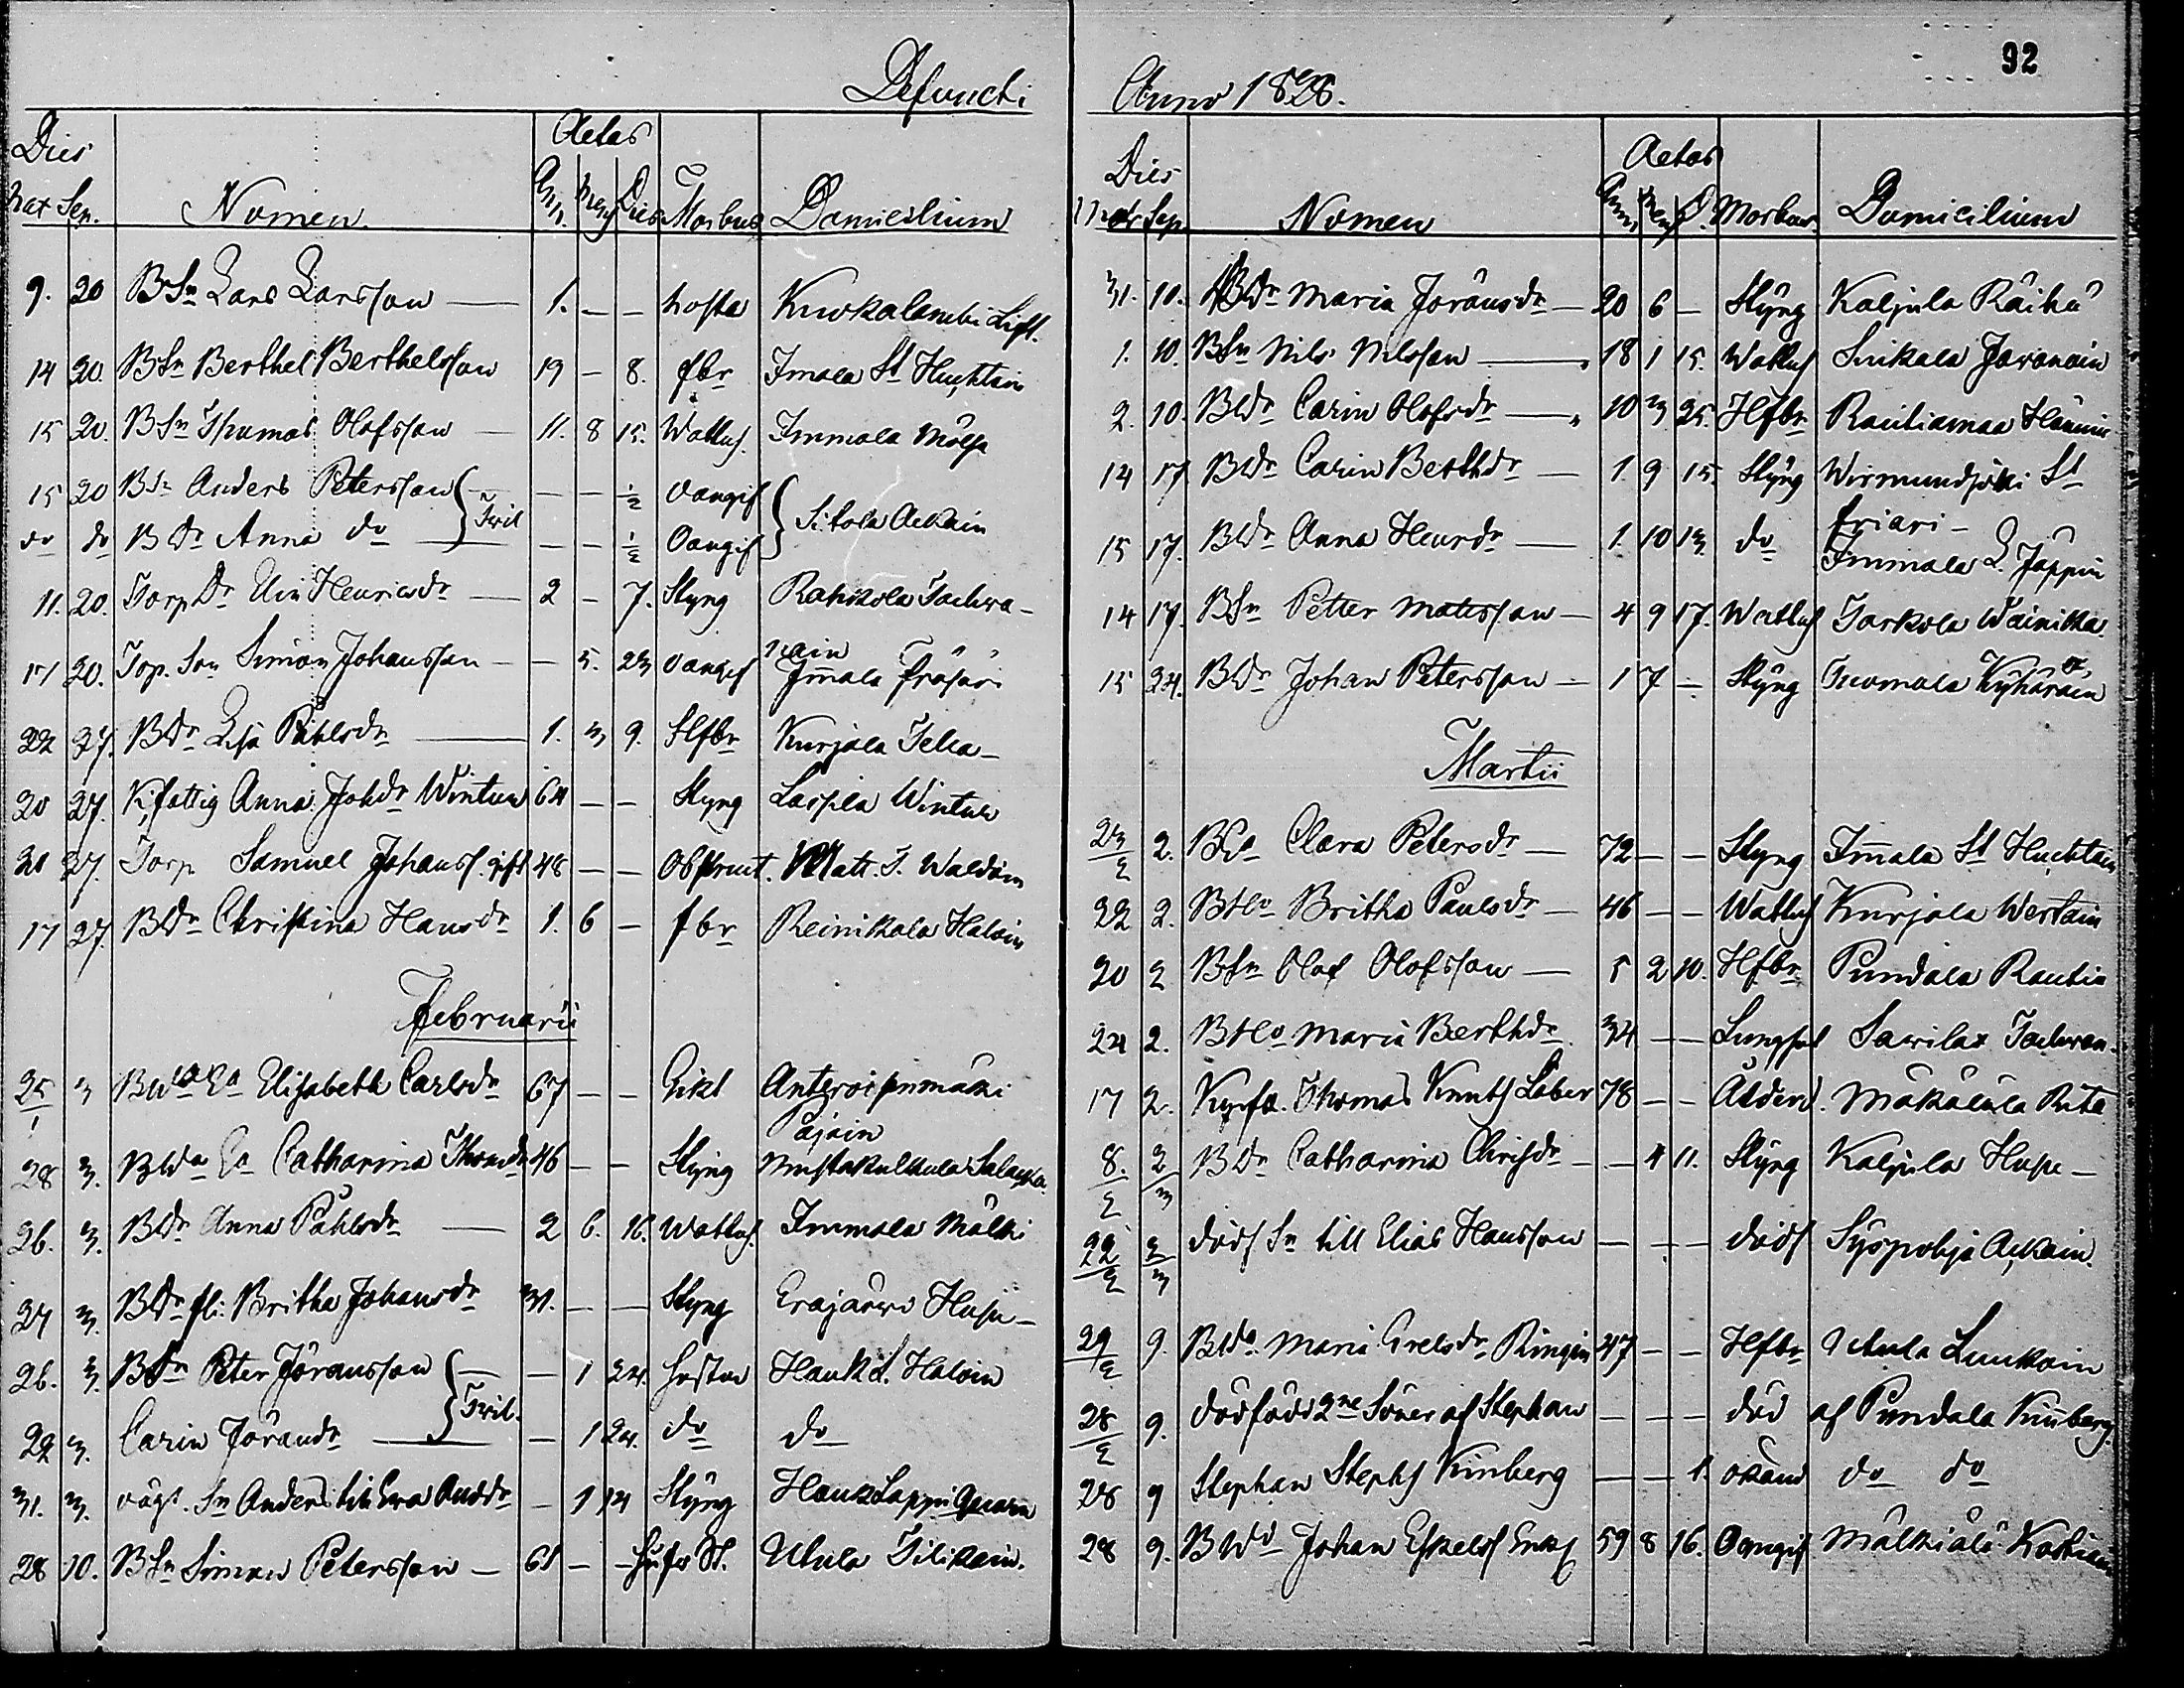 92
Defuncti
Dies Aetas
nat Sep. Nomen Ann. Mens Dies Morbus Domicilium
9. 20 BSn Lars Larsson — 1. — — hosta Kurkalambi Lift.
14 20. BSn Berthel Berthelsson 19 — 8. fbr Imala St Huchtain
15 20. BSn Thomas Olofsson — 11. 8 15. Wattus. Immala Mölsä
15 20 BSn Anders Petersson — — — ½ oangif
Tvil Sitola Ackain
do do B Dr Anna do — — — ½ Oangif
11. 20. Torp Dr Elin Henricsdr — 2 — 7. Styng Rahikola Tachwa-
nain
17 20. Top. Son Simon Johansson — — 5. 23 oangif Immala
22 27. BDr Lisa Påhlsdr — 1. 3 9. Hfbr Kurjala Telia-
20 27. K, fattig Anna Johdr Wintur 64 — — Styng Laspila Wintur
20 27. Torp Samuel Johanss. gift 48 — — Obstruct. Matt. I. Waldön
17 27. BDr Christina Hansdr 1. 6 — fbr Reinikala Haloin
Februarii
25/1 3 BWa Ea Elisabeth Carlsdr 67 — — Gikt
Pajain
28 3. BWa Ea Catharina Thomdr 46 — — Styng Mustakulkula
26. 3. BDr Anna Påhlsdr — 2 6. 16. Wattus. Immala Mälki
27 3. BDr fli. Britha Johansdr 31. — — Styng Erajärvi Hupi-
26. 3. BSn Peter Jöransson — — 1 24. hostan Hauk L. Haloin
Tvil.
29 3. Carin Jörandr — — 1 24. do do
31. 3. oägt. Sn Anders till Eva Anddr — 1 14 Styng Hauk Lappi Qvarn
28 10. BSn Simon Petersson — 61 — — St. Utula Tilikain.
Anno 1828.
Dies Aetas
Mor Sep. Nomen Ann Mens D. Morbus Domicilium
31. 10. BDr Maria Jöransdr — 20 6 — Styng Kaljula Räihä
1. 10. BSn Nils Nilsson — 18 1 15. Wattus Suikala Javanain
2. 10. BDr Carin Olofsdr — 10 3 25. Hfbr Rautiamaa Hännin
14 17 BDr Carin Berthdr — 1. 9 15. Styng Wirmundjoki St
friari-
15 17. BDr Anna Henrdr — 1. 10 13 do Immala L. Jäppin
14 17. BSn Petter Matsson — 4 9 17. Wattus Jarkola Wäinikka.
15 24. BDr Johan Petersson — 1 7 — Styng Tuomala Kyhäräin
Martii
23/2 2. Clara Petersdr — 72 — — Styng Immala St Huchtain
22 2. BHo Britha Paulsdr — 46 — — Wattus Kurjala Wertain
20 2 BSn Olof Olofsson — 5 2 10. Hfbr Pundala Rautia
24 2. BHo Maria Berthdr. 34 — — Lungsot Savilax Tachvan-
17 2. Thomas Knuts Laber 78 — — Ålderd. Mäkälälä Rita
8./2 2/3 BDr Catharina Chrisdr — — 4 11. Styng Kaljula Hupe-
22/2 2/3 dödf Sn till Elias Hansson — — — dödf Syyspohja Ackain.
29/2 9. BWa Maria Grelsdr Ringin 47 — — Hfbr Utula Luukain
28/2 9. dödföds 2ne Söner af Stephan — — — död af Pundala Kinberg.
28 9 Stephan Stephs Kinberg — — 1. okänd do do
28 9. BWd Johan Eskels Enkl 59 8 16. Oangif Mälkiälä Kostiain